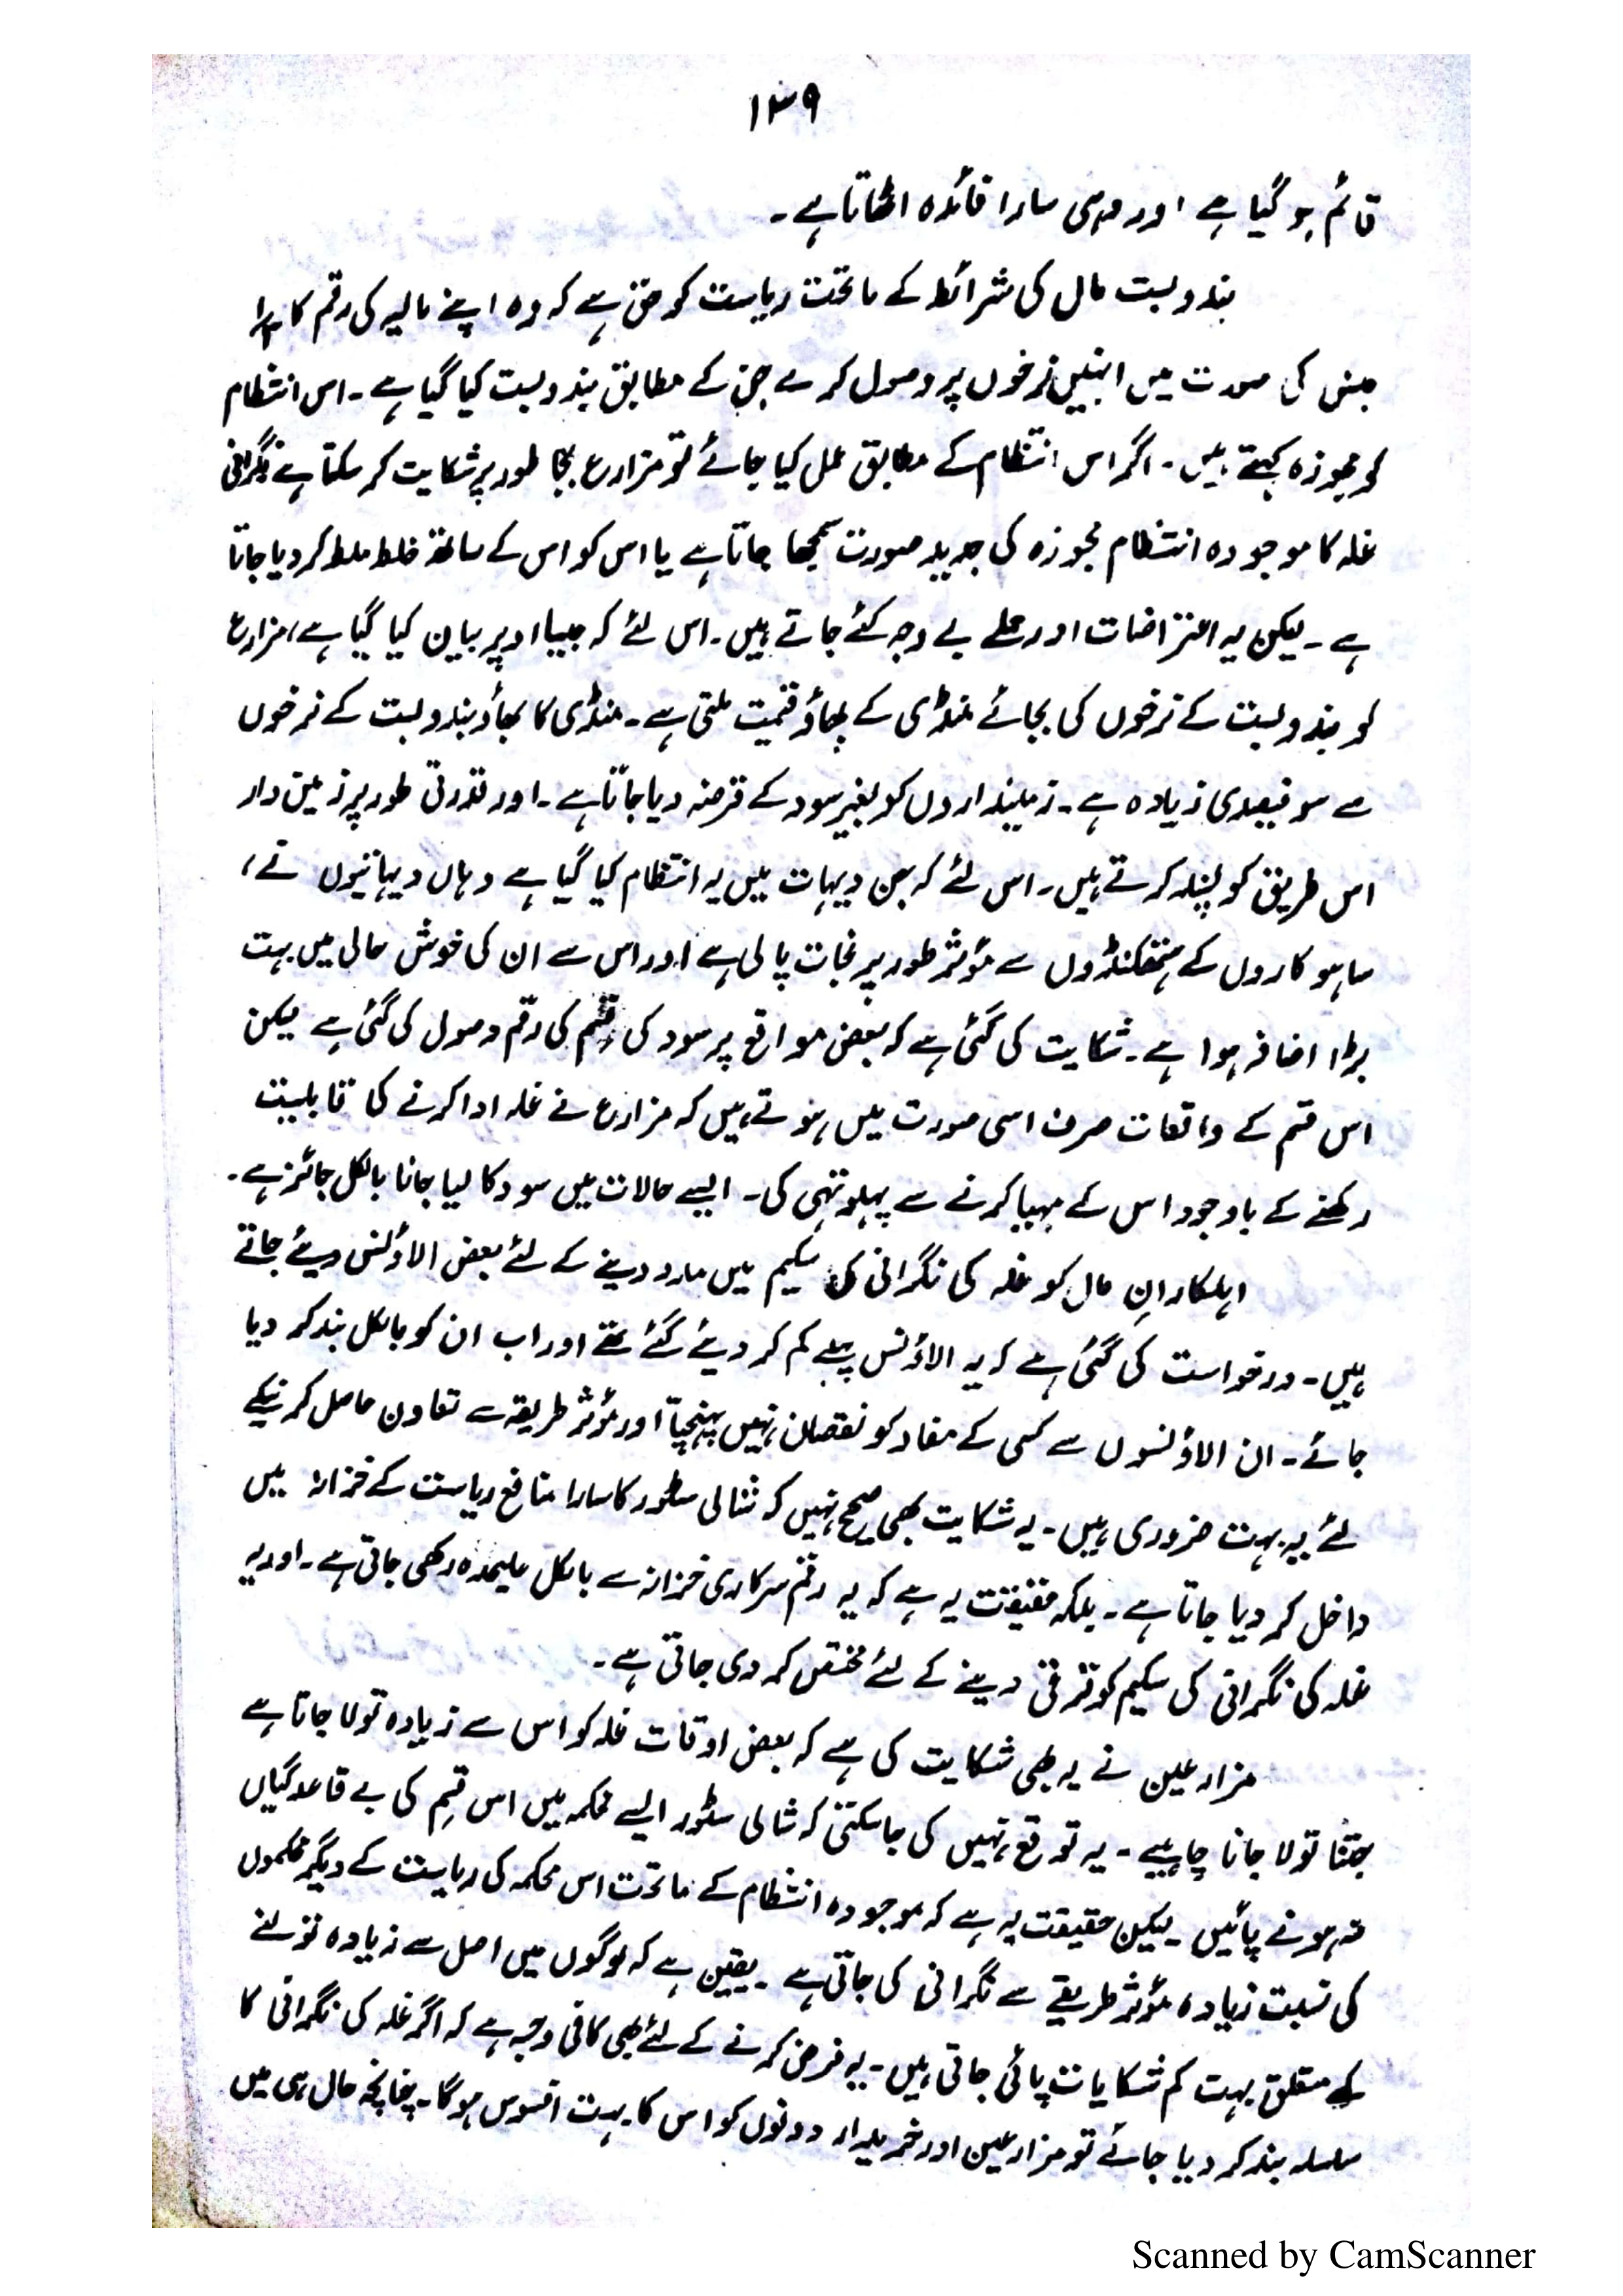 ۱۳۹
قائم ہو گیا ہے اور وہی سارا فائدہ اٹھاتا ہے ۔
بندوبست مال کی شرائط کے ماتحت ریاست کو حق ہے کہ وہ اپنے مالیہ کی رقم کا
جنس کی صورت میں انہیں نرخوں پر وصول کرے جن کے مطابق بندوبست کیا گیا ہے ۔ اس انتظام
کو مجوزہ کہتے ہیں ۔ اگر اس انتظام کے مطابق عمل کیا جائے تو مزارع بجا طور پر شکایت کر سکتا ہے نگرانی
غلہ کا موجودہ انتظام مجوزہ کی جدید صورت سمجھا جاتا ہے یا اس کو اس کے ساتھ خلط ملط کر دیا جاتا
ہے ۔ لیکن یہ اعتراضات اور حملے بے وجہ کئے جاتے ہیں ۔ اس لئے کہ جیسا اوپر بیان کیا گیا ہے، مزارع
کو بندوبست کے نرخوں کی بجائے منڈی کے بھاؤ قیمت ملتی ہے ۔ منڈی کا بھاؤ بندوبست کے نرخوں
سے سو فیصدی زیادہ ہے ۔ زمینداروں کو بغیر سود کے قرضہ دیا جاتا ہے ۔ اور قدرتی طور پر زمین دار
اس طریق کو پسند کرتے ہیں ۔ اس لئے کہ جن دیہات میں یہ انتظام کیا گیا ہے وہاں دیہاتیوں نے ،
ساہوکاروں کے ہتھکنڈوں سے مؤثر طور پر نجات پالی ہے اور اس سے ان کی خوش حالی میں بہت
بڑا اضافہ ہوا ہے ۔ شکایت کی گئی ہے کہ بعض مواقع پر سود کی قسم کی رقم وصول کی گئی ہے لیکن
اس قسم کے واقعات صرف اسی صورت میں ہوتے ہیں کہ مزارع نے غلہ ادا کرنے کا قابلیت
رکھنے کے باوجود اس کے مہیا کرنے سے پہلو تہی کی ۔ ایسے حالات میں سود کا لیا جانا بالکل جائز ہے ۔
اہلکارانِ مال کو غلہ کی نگرانی کی سکیم میں مدد دینے کے لئے بعض الاؤنس دیئے جاتے
ہیں ۔ درخواست کی گئی ہے کہ یہ الاؤنس پہلے کم کر دیئے گئے تھے اور اب ان کو بالکل بند کر دیا
جائے ۔ ان الاؤنسوں سے کسی کے مفاد کو نقصان نہیں پہنچتا اور مؤثر طریقہ سے تعاون حاصل کرنیکے
لئے یہ بہت ضروری ہیں ۔ یہ شکایت بھی صحیح نہیں کہ شالی سٹور کا سارا منافع ریاست کے خزانہ میں
داخل کر دیا جاتا ہے ۔ بلکہ حقیقت یہ ہے کہ یہ رقم سرکاری خزانہ سے بالکل علیحدہ رکھی جاتی ہے ۔ اور یہ
غلہ کی نگرانی کی سکیم کو ترقی دینے کے لئے مختص کر دی جاتی ہے ۔
مزارعین نے یہ بھی شکایت کی ہے کہ بعض اوقات غلہ کو اس سے زیادہ تولا جاتا ہے
جتنا تولا جانا چاہیے ۔ یہ توقع نہیں کی جا سکتی کہ شالی سٹور ایسے محکمہ میں اس قسم کی بے قاعدگیاں
نہ ہونے پائیں ۔ لیکن حقیقت یہ ہے کہ موجودہ انتظام کے ماتحت اس محکمہ کی ریاست کے دیگر محکموں
کی نسبت زیادہ مؤثر طریقے سے نگرانی کی جاتی ہے ۔ یقین ہے کہ لوگوں میں اصل سے زیادہ تولنے
کے متعلق بہت کم شکایات پائی جاتی ہیں ۔ یہ فرض کرنے کے لئے بھی کافی وجہ ہے کہ اگر غلہ کی نگرانی کا
سلسلہ بند کر دیا جائے تو مزارعین اور خریدار دونوں کو اس کا بہت افسوس ہو گا ۔ چنانچہ حال ہی میں
Scanned by CamScanner